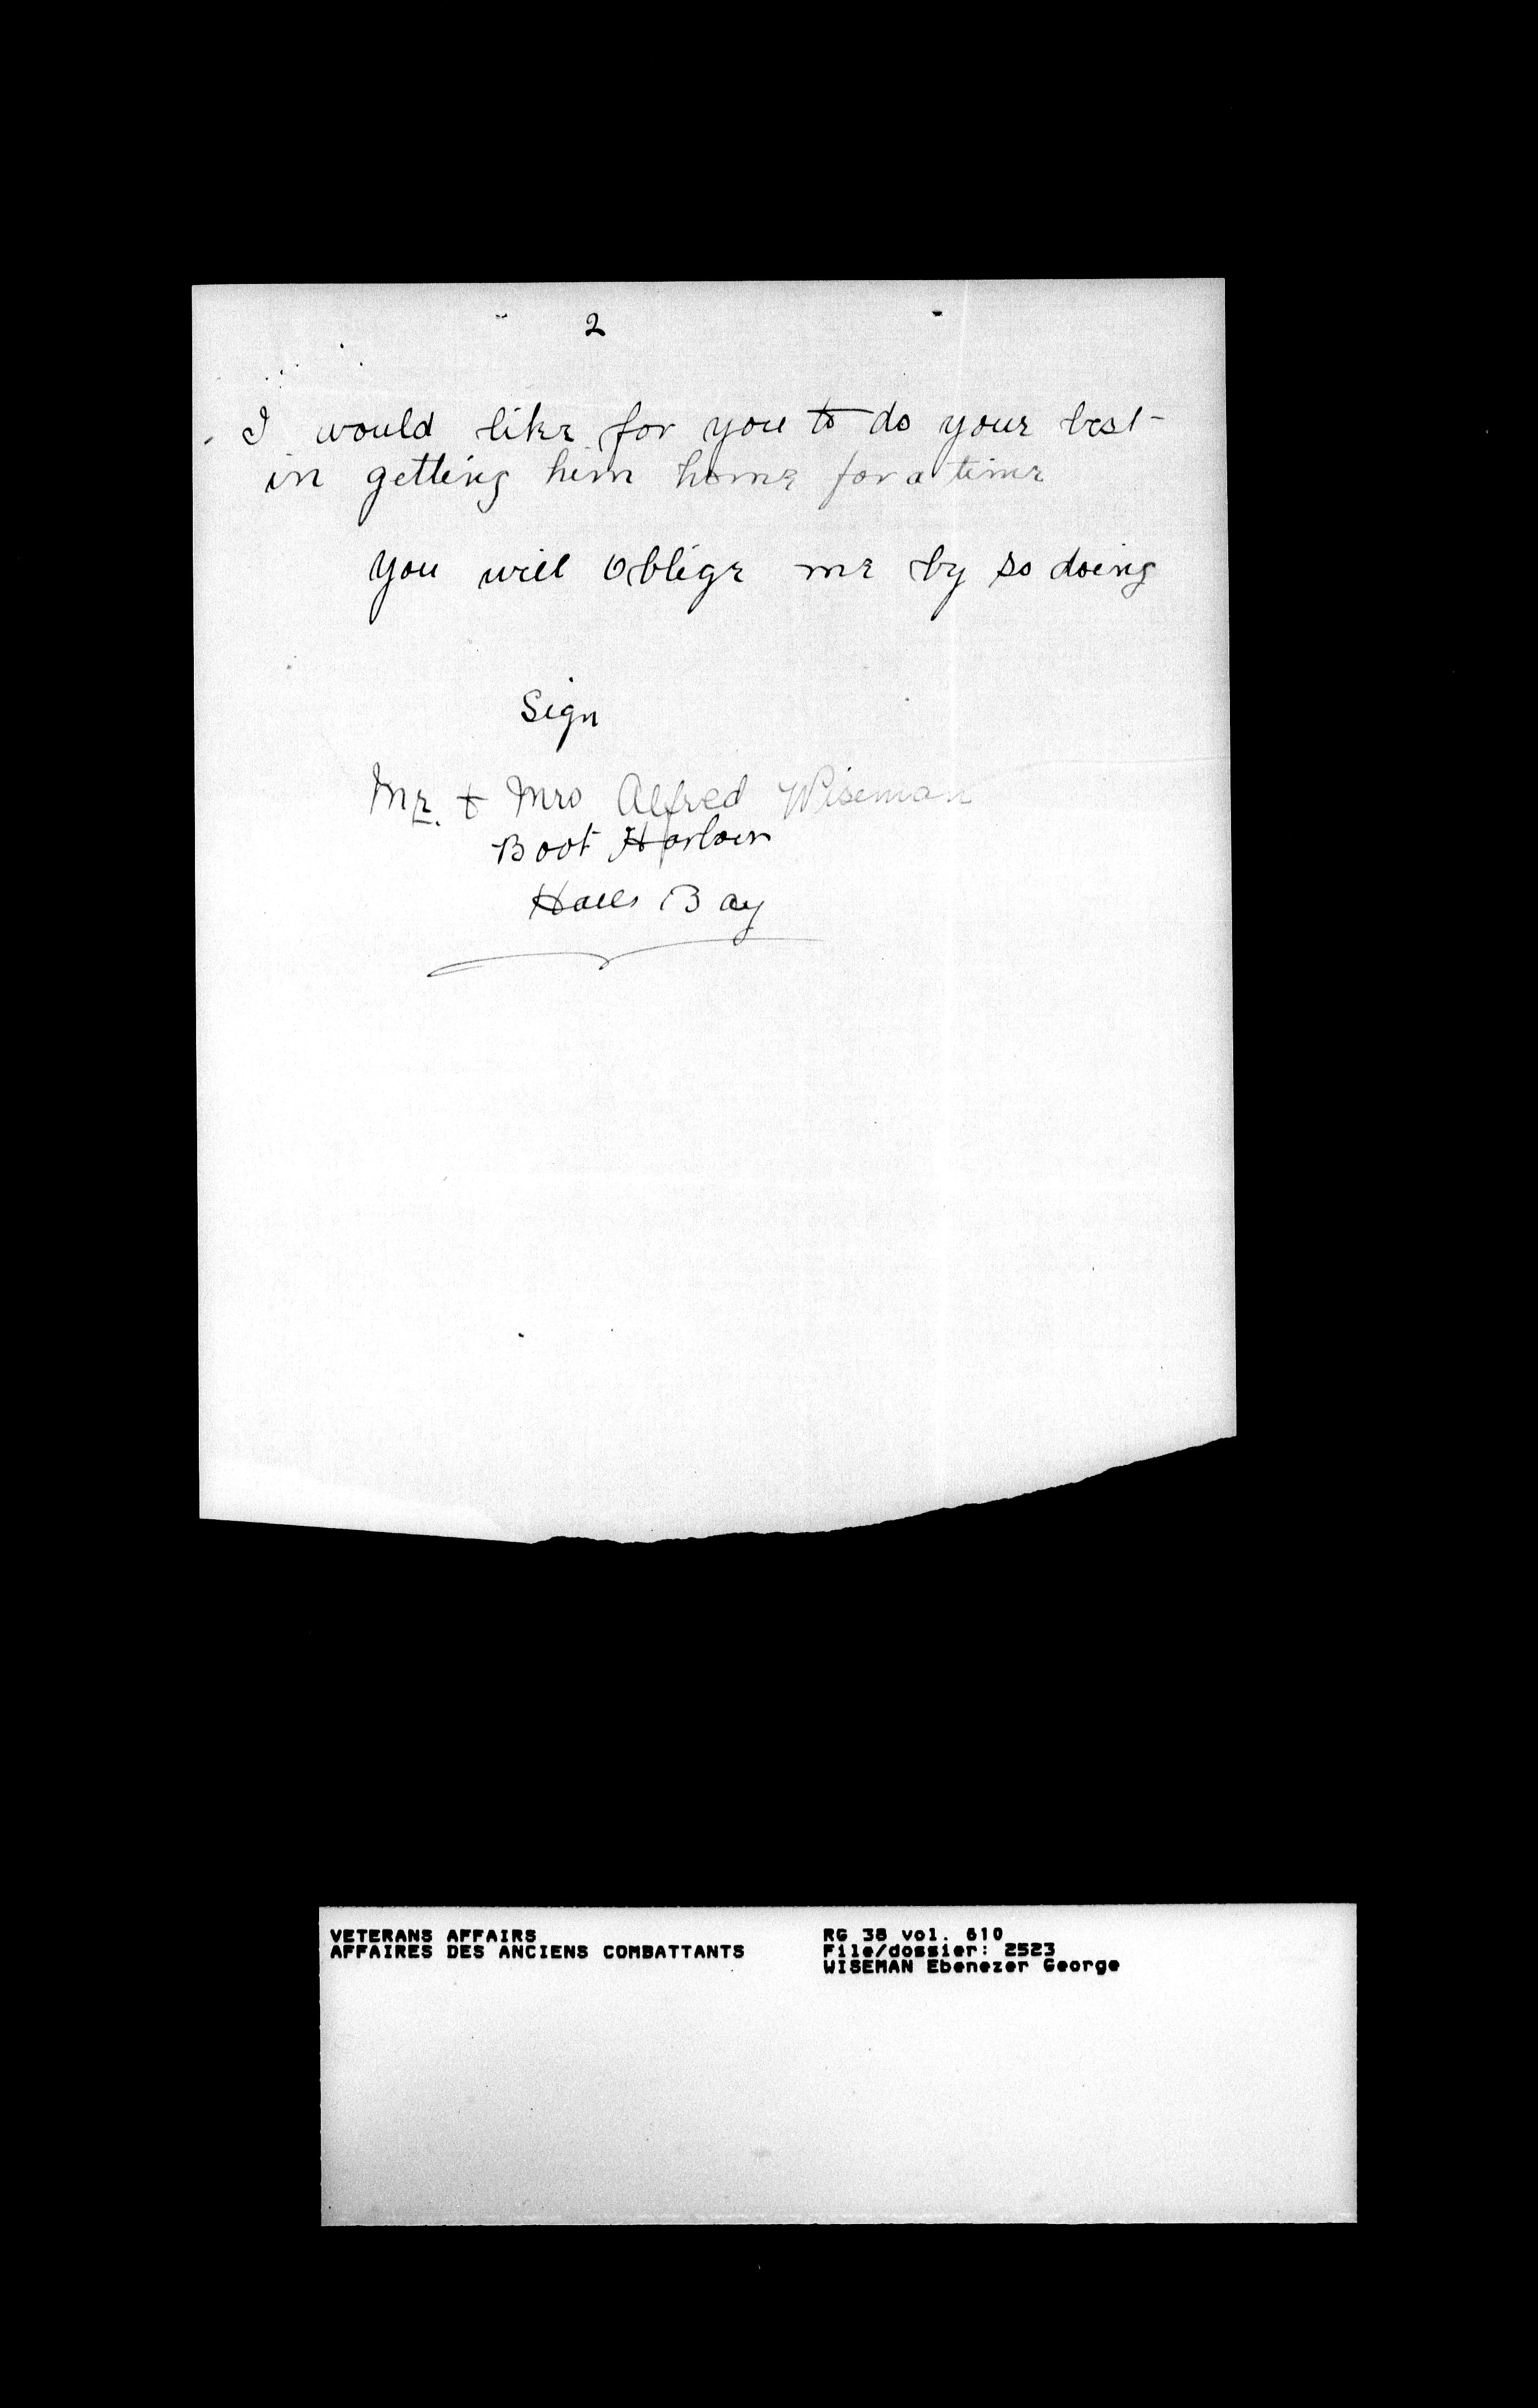 2
I would like for you to do your best
in getting him home for a time
You will Oblige me by so doing
Sign
Mr. & Mrs Alfred Wiseman
Boot Harbour
Halls Bay
VETERANS AFFAIRS
AFFAIRES DES ANCIENS COMBATTANTS
RG 38 vol. 610
File/dossier: 2523
WISEMAN Ebenezer George